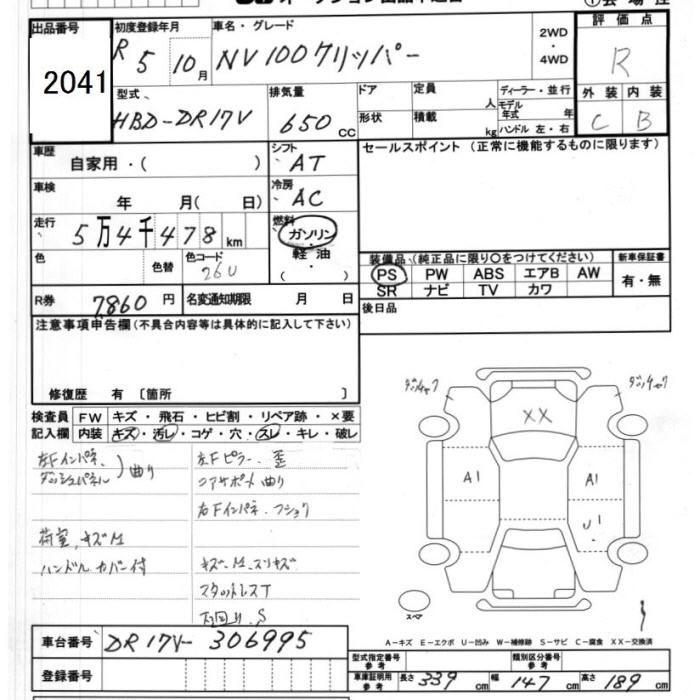 出品番号
2041
初度登録年月
R 5 10月
車名・グレード
NV100クリッパー
2WD
・
4WD
評価点
R
型式
HBD-DR17V
排気量
650 cc
ドア
形状
定員 人
積載 kg
ディーラー・並行
モデル年式 年
ハンドル 左・右
外装 内装
C B
車歴
自家用・( )
シフト
AT
セールスポイント (正常に機能するものに限ります)
車検
年 月( 日)
冷房
AC
走行
5万4千478 km
燃料
ガソリン
・
軽油
( ・ )
色
色替
色コード
26U
装備品 (純正品に限り〇をつけてください)
新車保証書
PS PW ABS エアB AW
SR ナビ TV カワ
有・無
R券 7,860 円
名変通知期限 月 日
後日品
注意事項申告欄 (不具合内容等は具体的に記入して下さい)
修復歴 有 〔箇所 〕
検査員記入欄
FW キズ・飛石・ヒビ割・リペア跡・×要
内装 キズ・汚レ・コゲ・穴・スレ・キレ・破レ
左Fインパネ、
ダッシュパネル
曲り
左Fピラー 歪
コアサポート曲り
右Fインパネ
荷室、キズM
ハンドルカバー付
キズM、スリキズ
スタットレスT
下回り、S
XX
A1
A1
U1
スペア
A-キズ E-エクボ U-凹み W-補修跡 S-サビ C-腐食 XX-交換済
車台番号
DR17V-306995
登録番号
型式指定番号
参考
類別区分番号
参考
車庫証明用
参考
長さ 339 cm
幅 147 cm
高さ 189 cm